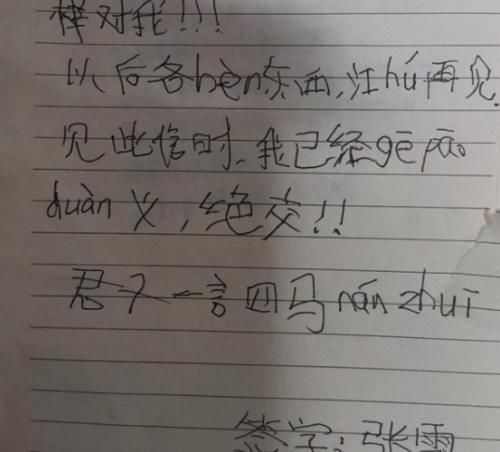 样对我!!!
以后各bèn东西,江hú再见,
见此信时,我已经gē páo
duàn义,绝交!!
君子一言四马nán zhuī
签字:张雪